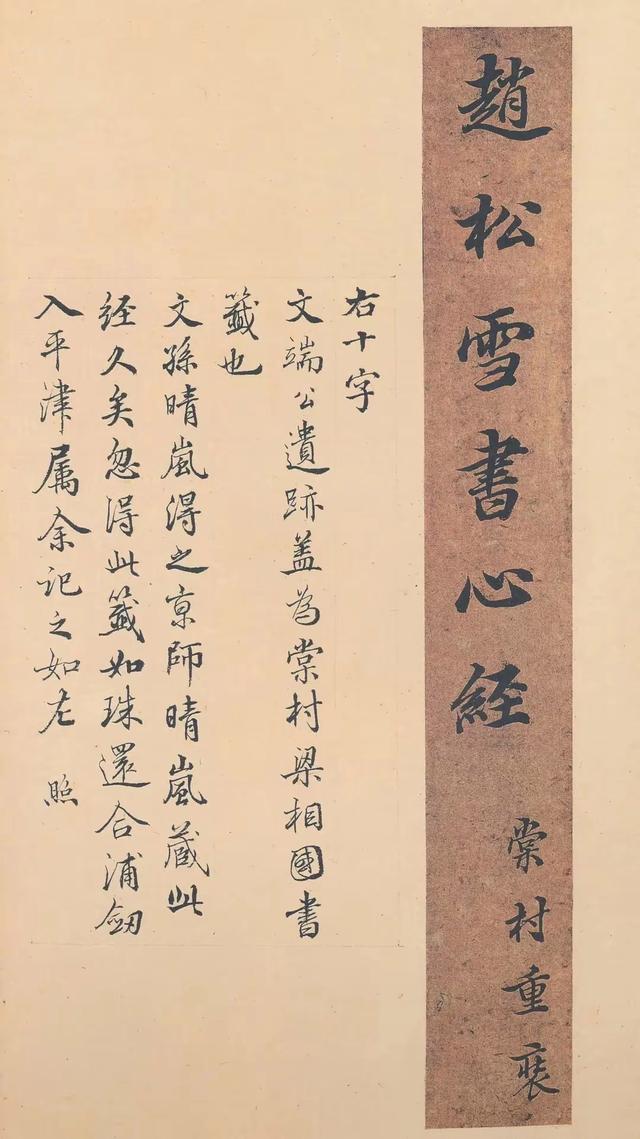 趙松雪書心經
棠村重裝
右十字
文端公遺跡蓋為棠村梁相國書
籤也
文孫晴嵐得之京師晴嵐藏此
经久矣忽得此籤如珠還合浦劔
入平津属余記之如左 照